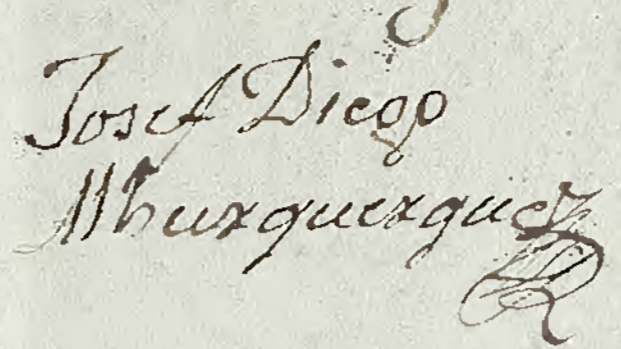 Josef Diego
Alburquerque